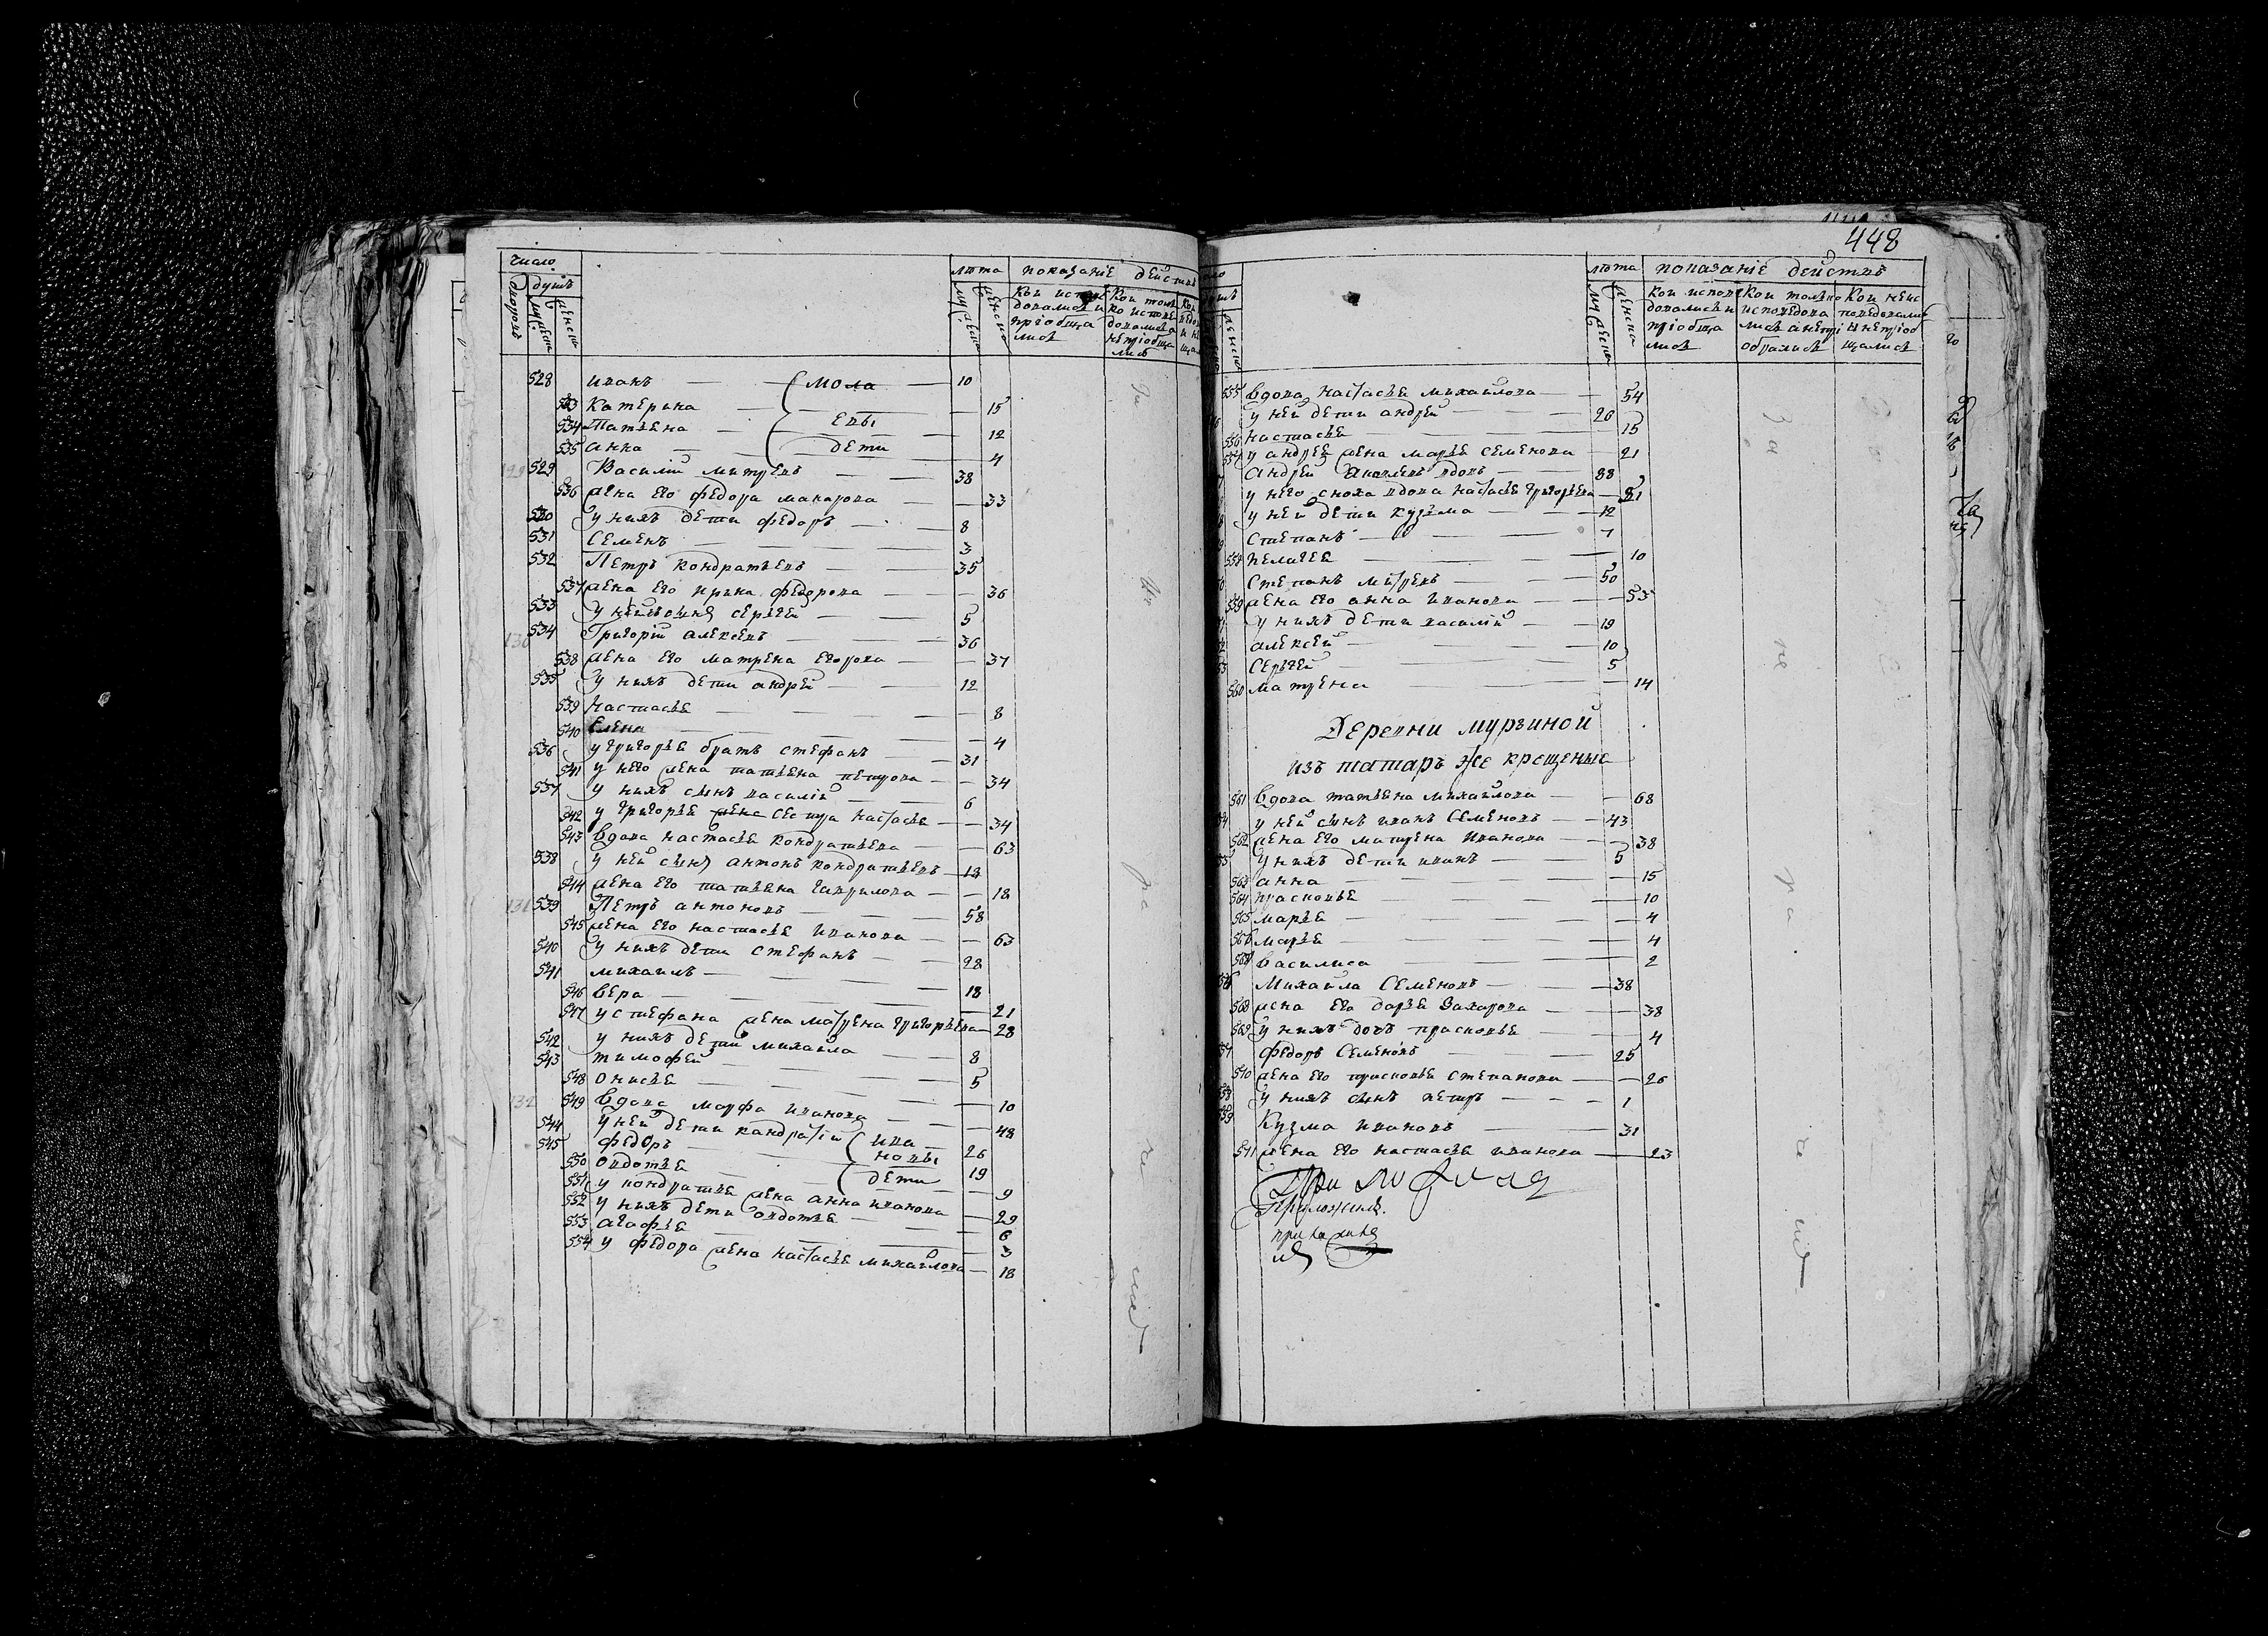 число
лѣта показаніе дейстиъ
дворовъ
душъ
мужеска
женска
мужеска
женска
Кои испове
довались и
приобща
лись
Кои толь
ко испове
довались а
неприобща
лись
528 иванъ — (мола — 10
533 Катерина — 15
534 Татьяна — евы — 12
535 анна — дети — 4
129 529 Василій митревъ — 38
536 жена его федора макарова — 33
530 у нихъ дети федоръ — 8
531 Семенъ — 3
532 Петръ кондратьевъ — 35
537 жена его ирина федорова — 36
533 у нихъ сынъ сергей — 5
130 534 Григорій алексевъ — 36
538 жена его матрена егорова — 37
535 у нихъ дети андрей — 12
539 настасья — 8
540 Елена — 4
536 у григорья братъ стефанъ — 31
541 у него жена татьяна петрова — 34
537 у нихъ сынъ василій — 6
542 у григорья жена сестра настасья — 34
543 вдова настасья кондратьева — 63
538 у ней сынъ антонъ кондратьевъ — 18
544 жена его татьяна гаврилова — 18
131 539 Петръ антоновъ — 58
545 жена его настасья иванова — 63
540 у нихъ дети стефанъ — 28
541 михаилъ — 18
546 вера — 21
547 у стефана жена матрена григорьева — 28
542 у нихъ дети михаила — 8
543 тимофей — 5
548 онисья — 10
132 549 вдова марфа иванова — 48
544 у ней дети кандратій (ива — 26
545 федоръ — новы — 19
550 овдотья — (дети — 9
551 у кондратья жена анна иванова — 29
552 у нихъ дети овдотья — 6
553 агафья — 3
554 у федора жена настасья михайлова — 18
448
лѣта показаніе дейстиъ
мужеска
женска
Кои испове
довались и
приобща
лись
Кои только
исповедова
лись а непрі
общались
Кои неис
поведовалис
и неприоб
щались
555 вдова настасья михайлова — 54
у ней дети андрей — 20
556 настасья — 15
557 у андрея жена марья семенова — 21
андрей яковлевъ вдовъ — 88
у него сноха вдова настасья григорьева — 51
у ней дети кузьма — 12
Степанъ — 7
558 пелагея — 10
Степанъ митревъ — 50
559 жена его анна иванова — 53
у нихъ дети василій — 19
алексей — 10
Сергей — 5
560 матрена — 14
Деревни мурзиной
изъ татаръ же крещеныя
561 вдова татьяна михаилова — 68
у ней сынъ иванъ семеновъ — 43
562 жена его матрена иванова — 38
у нихъ дети иванъ — 5
563 анна — 15
564 прасковья — 10
565 марья — 4
566 марья — 4
567 василиса — 2
Михаила Семеновъ — 38
568 жена его дарья Захарова — 38
569 у нихъ дочь прасковья — 4
федоръ Семеновъ — 25
570 жена его прасковья степанова — 26
у нихъ сынъ петръ — 1
Кузма ивановъ — 31
571 жена его настасья иванова — 23